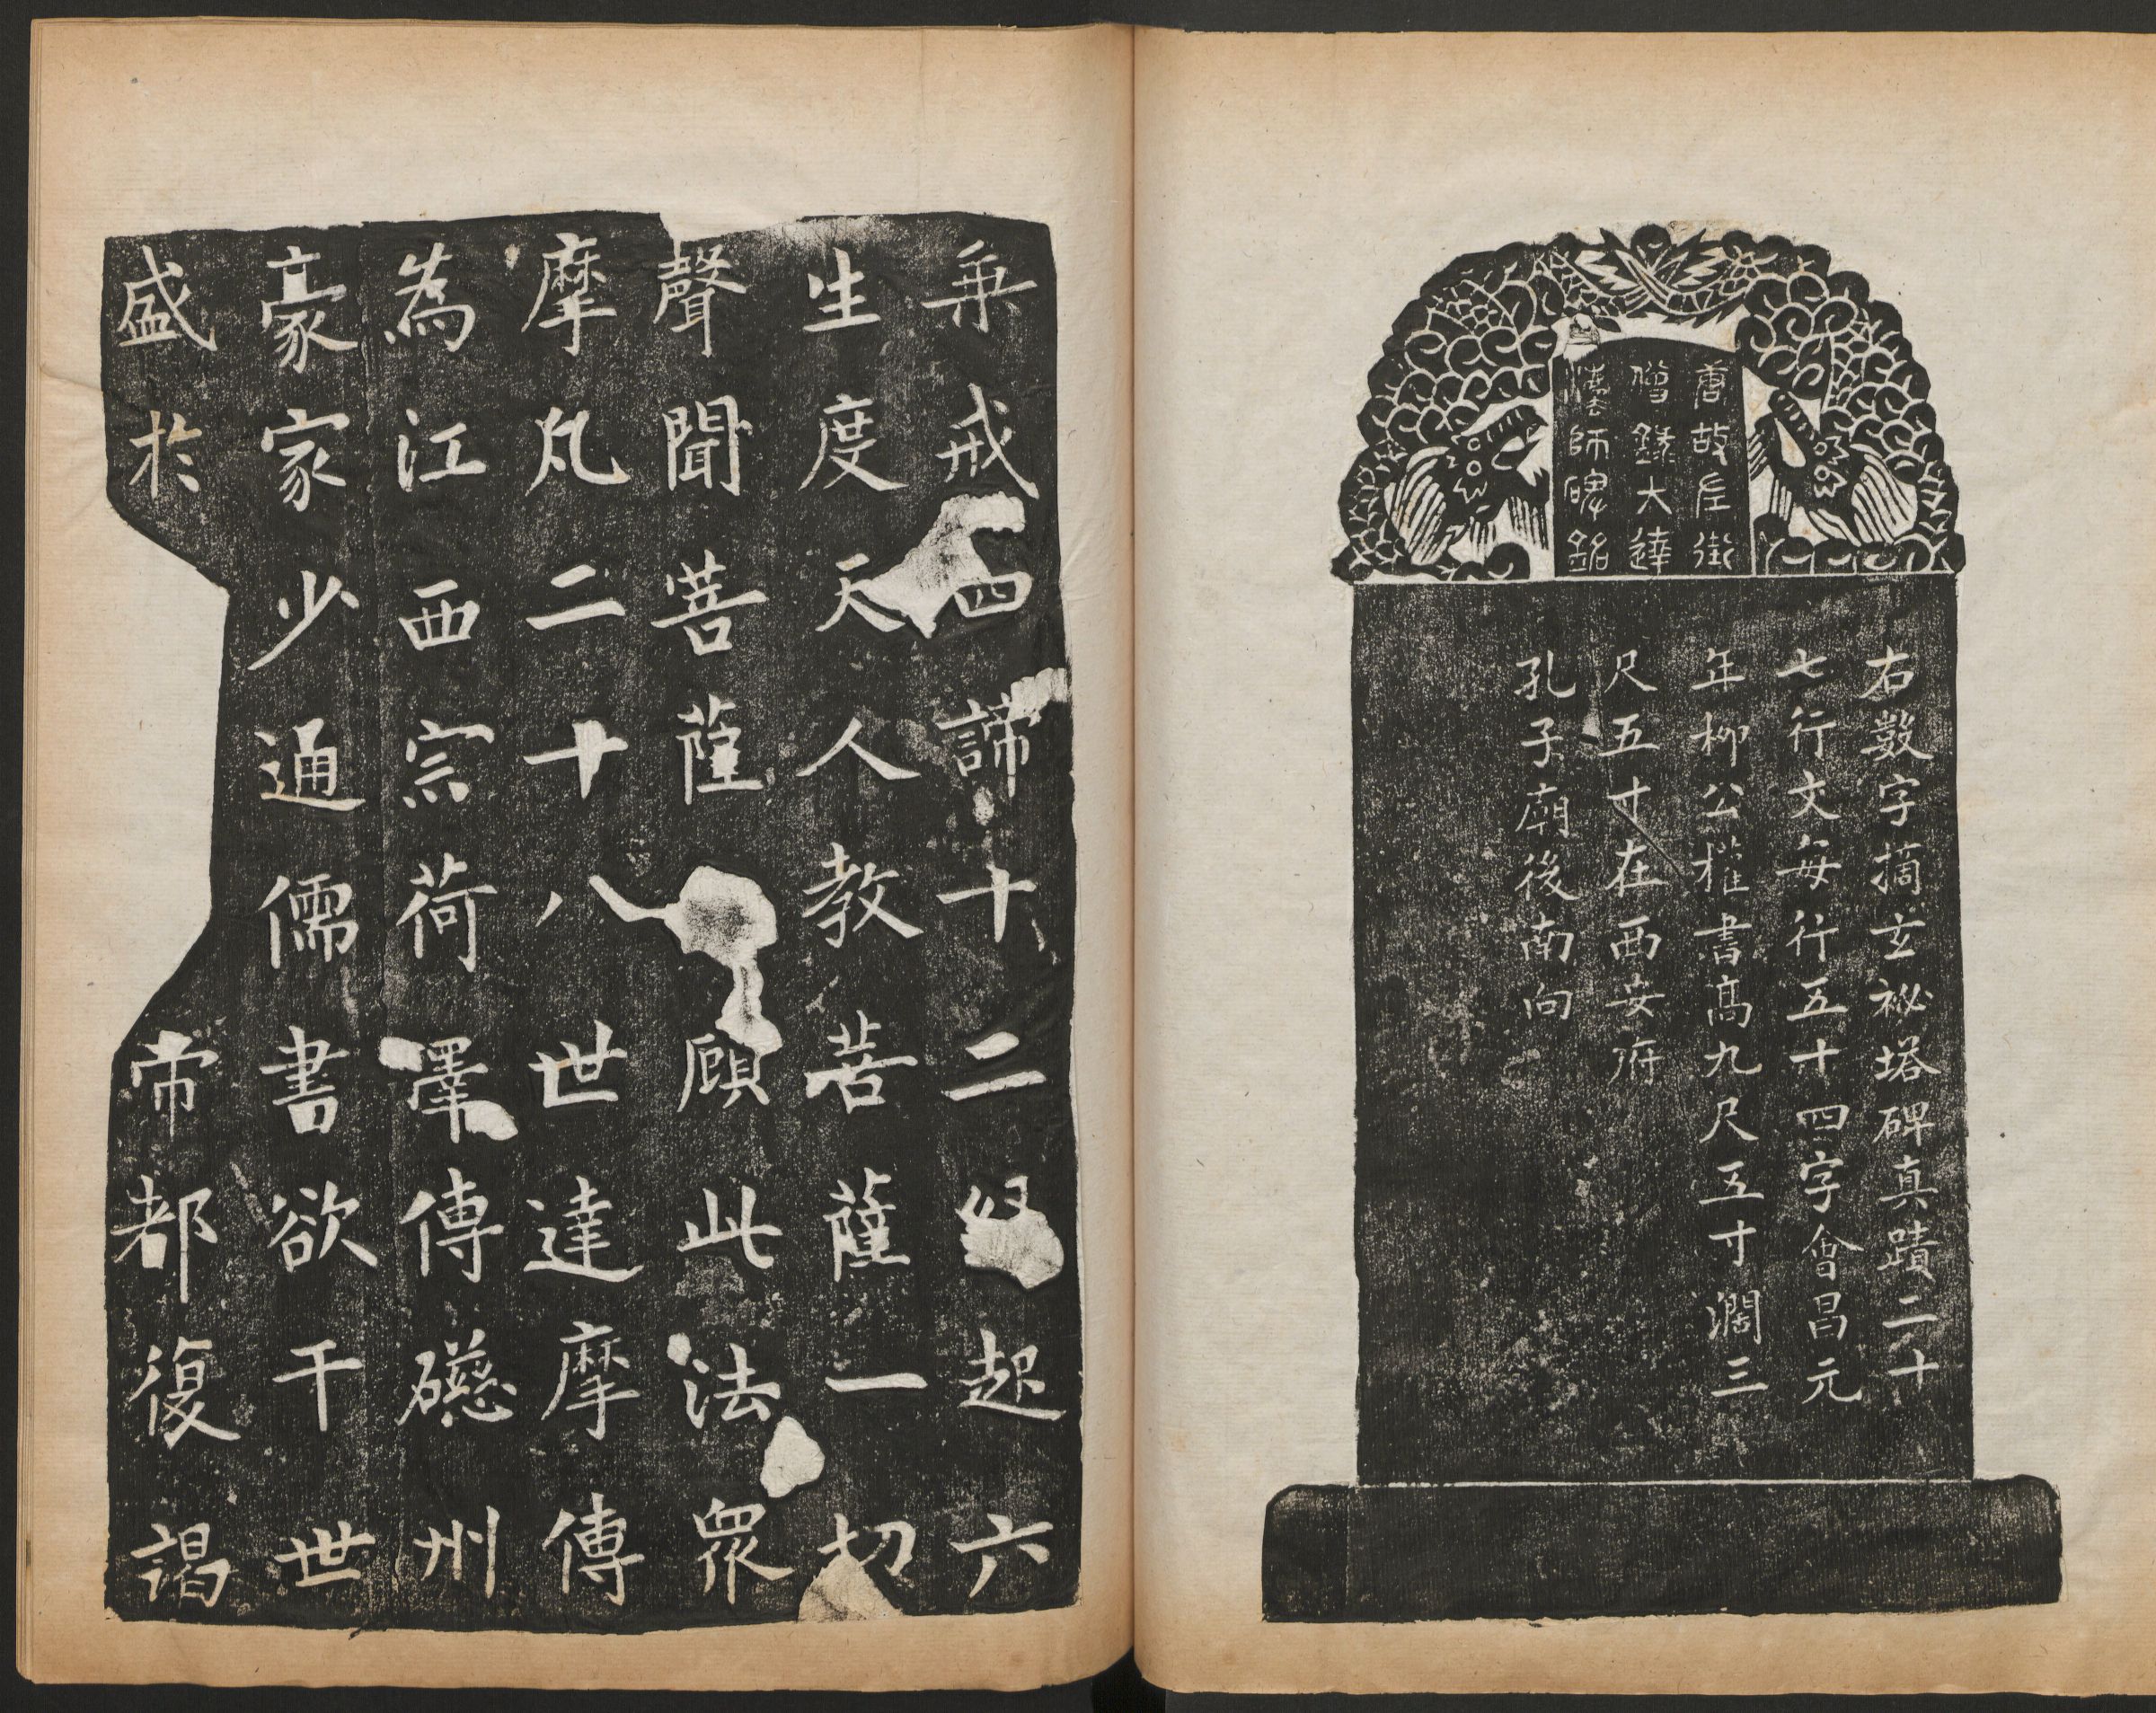 唐故左街
僧錄大達
法師碑銘
右數字摘玄祕塔碑真蹟二十
七行文每行五十四字會昌元
年柳公權書高九尺五寸濶三
尺五寸在西安府
孔子廟後南向
乗戒四諦十二起六
生度天人教菩薩一切
聲聞菩薩顧此法衆
摩凡二十八世達摩傳
為江西宗荷澤傳礠州
豪家少通儒書欲干世
盛於帝都復謁